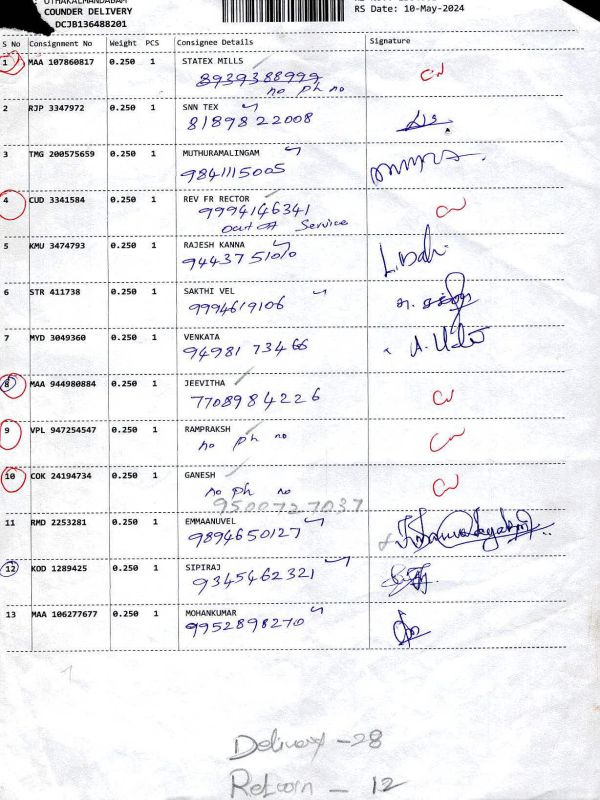 COUNDER DELIVERY
DCJB136488201
RS Date: 10-May-2024
S No Consignment No Weight PCS Consignee Details Signature
1 MAA 107860817 0.250 1 STATEX MILLS
8939388999
no ph no
2 RJP 3347972 0.250 1 SNN TEX
8189822008
3 TMG 200575659 0.250 1 MUTHURAMALINGAM
9841115005
4 CUD 3341584 0.250 1 REV FR RECTOR
9994146341
out of Service
5 KMU 3474793 0.250 1 RAJESH KANNA
9443751010
6 STR 411738 0.250 1 SAKTHI VEL
9994619106
7 MYD 3049360 0.250 1 VENKATA
94981 73466
8 MAA 944980884 0.250 1 JEEVITHA
7708984226
9 VPL 947254547 0.250 1 RAMPRAKSH
no ph no
10 COK 24194734 0.250 1 GANESH
no ph no
9500727037
11 RMD 2253281 0.250 1 EMMAANUVEL
9894650127
12 KOD 1289425 0.250 1 SIPIRAJ
9345462321
13 MAA 106277677 0.250 1 MOHANKUMAR
9952898270
1
Delivery - 28
Retoorn - 12